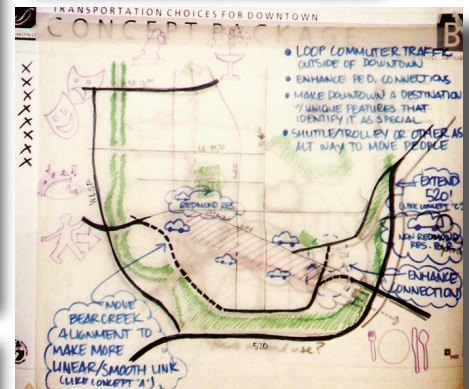 TRANSPORTATION CHOICES FOR DOWNTOWN
CONCEPT PACKAGE
B
• LOOP COMMUTER TRAFFIC
OUTSIDE OF DOWNTOWN
• ENHANCE PED. CONNECTIONS
• MAKE DOWNTOWN A DESTINATION
W/ UNIQUE FEATURES THAT
IDENTIFY IT AS SPECIAL
• SHUTTLE/TROLLEY OR OTHER AS
ALT WAY TO MOVE PEOPLE
REDMOND RES.
EXTEND
520!
(LIKE CONCEPT "C")
NON REDMOND
RES.
ENHANCE
CONNECTION
MOVE
BEAR CREEK
ALIGNMENT TO
MAKE MORE
LINEAR/SMOOTH LINK
(LIKE CONCEPT "A")
520
use?